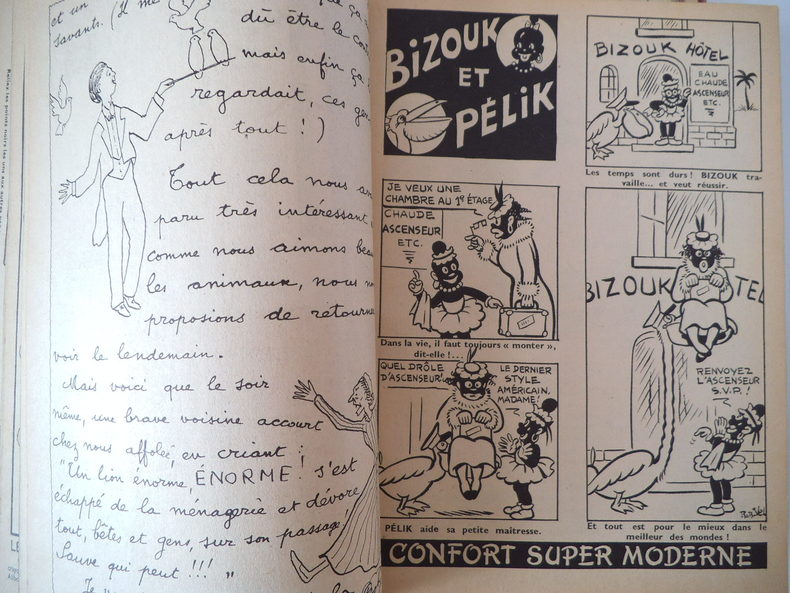 et un
savants. (Il me
dû être le
mais enfin ça
regardait, ces gens
après tout !)
Tout cela nous
paru très intéressant,
comme nous aimons
les animaux, nous
proposions de retourner
voir le lendemain.
Mais voici que le soir
même, une brave voisine accourt
chez nous affolée, en criant :
"Un lion énorme, ÉNORME ! s'est
échappé de la ménagerie et dévore
tout, bêtes et gens, sur son passage !
Sauve qui peut !!! "
BIZOUK
ET
PÉLIK
BIZOUK HÔTEL
EAU
CHAUDE
ASCENSEUR
ETC.
Les temps sont durs! BIZOUK tra-
vaille... et veut réussir.
JE VEUX UNE
CHAMBRE AU 1e ÉTAGE
CHAUDE
ASCENSEUR
ETC.
Dans la vie, il faut toujours « monter »,
dit-elle !...
QUEL DRÔLE
D'ASCENSEUR!
LE DERNIER
STYLE
AMÉRICAIN,
MADAME!
PÉLIK aide sa petite maitresse.
BIZOUK HOTEL
RENVOYEZ
L'ASCENSEUR
S.V.P.!
Et tout est pour le mieux dans le
meilleur des mondes !
CONFORT SUPER MODERNE